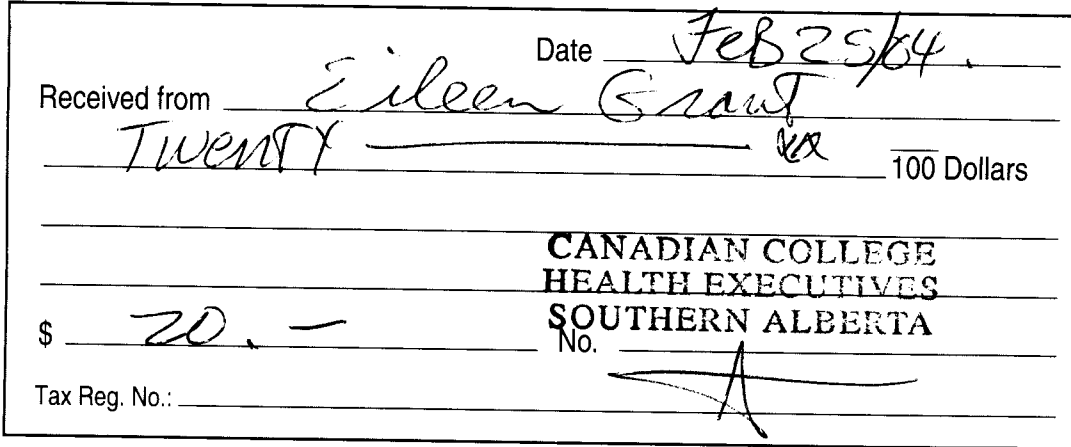 Date FeB 25/04.
Received from Eileen Grant
TWENTY — xx/100 Dollars
CANADIAN COLLEGE
HEALTH EXECUTIVES
SOUTHERN ALBERTA
$ 20. —
No.
Tax Reg. No.: